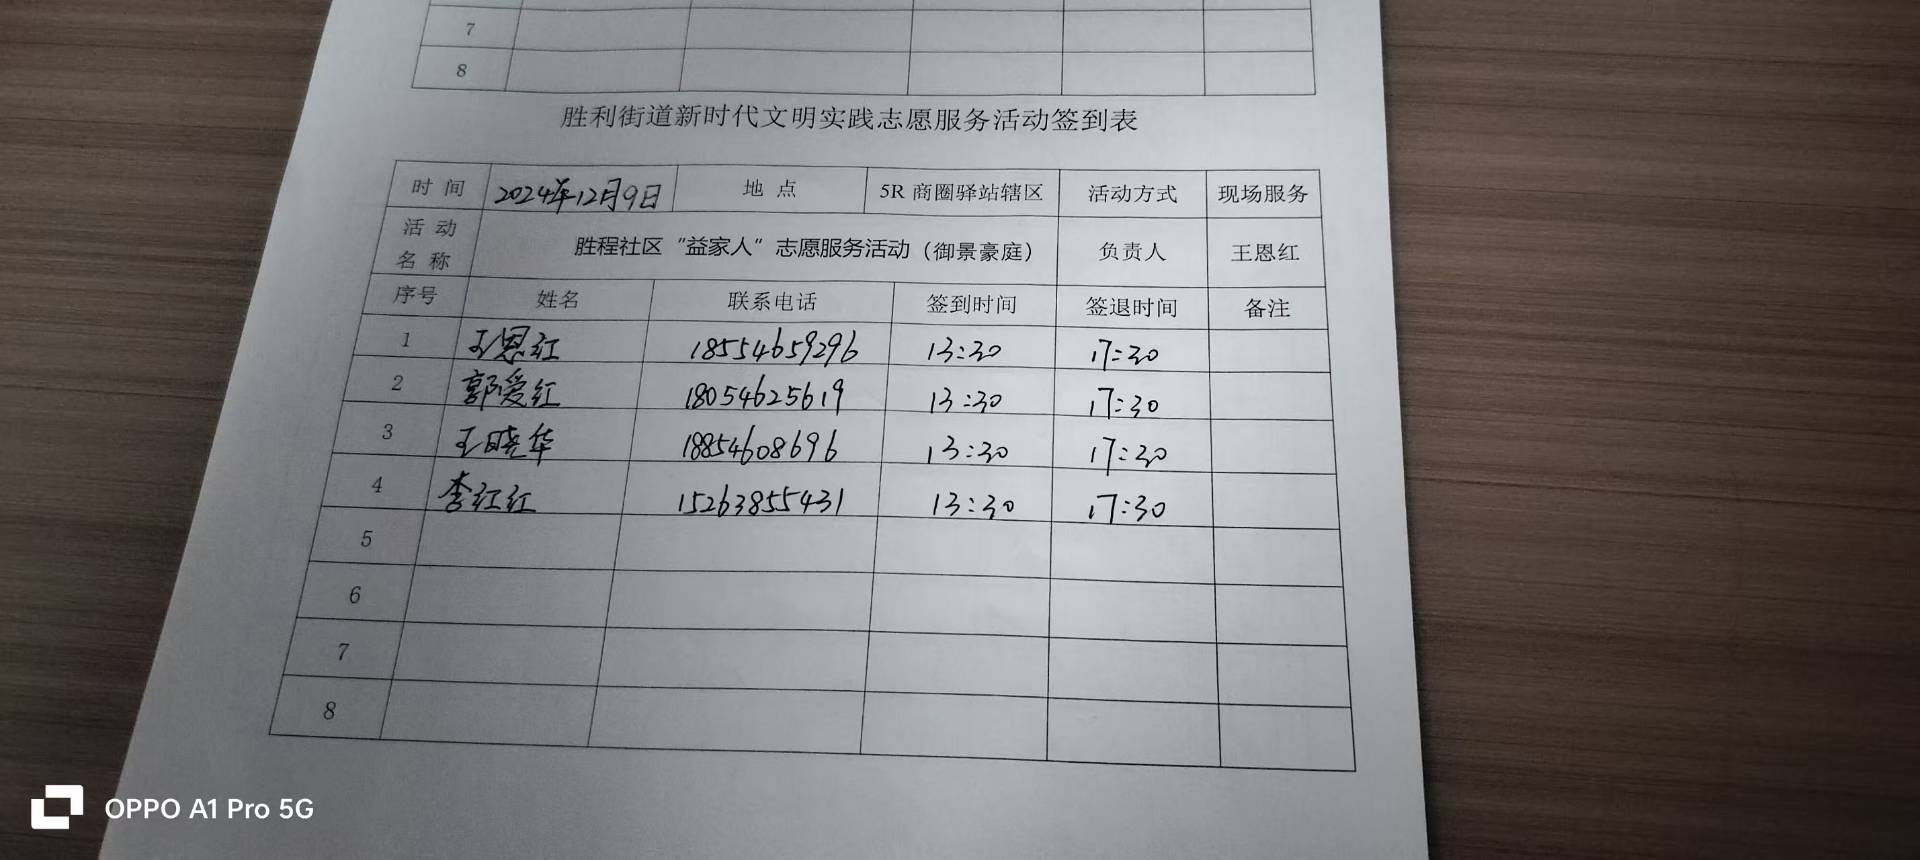 7
8
胜利街道新时代文明实践志愿服务活动签到表
时 间 2024年12月9日 地 点 5R 商圈驿站辖区 活动方式 现场服务
活 动
名 称 胜程社区“益家人”志愿服务活动（御景豪庭） 负责人 王恩红
序号 姓名 联系电话 签到时间 签退时间 备注
1 王恩红 18554659296 13:30 17:30
2 郭爱红 18054625619 13:30 17:30
3 王晓华 18854608696 13:30 17:30
4 李红红 15263855431 13:30 17:30
5
6
7
8
OPPO A1 Pro 5G